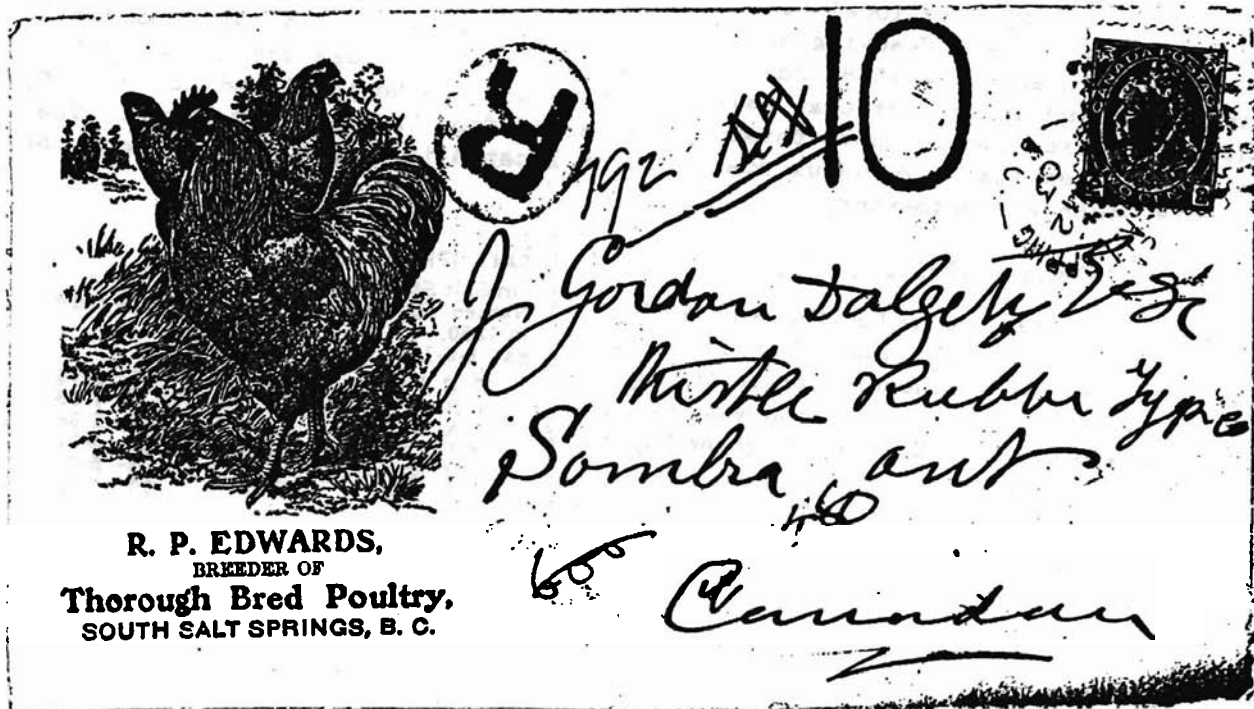 R
792
10
CANADA POSTAGE
J. Gordon Dalgety Esq
Thistle Rubber Type
Sombra ont
Canada
R. P. EDWARDS,
BREEDER OF
Thorough Bred Poultry,
SOUTH SALT SPRINGS, B. C.